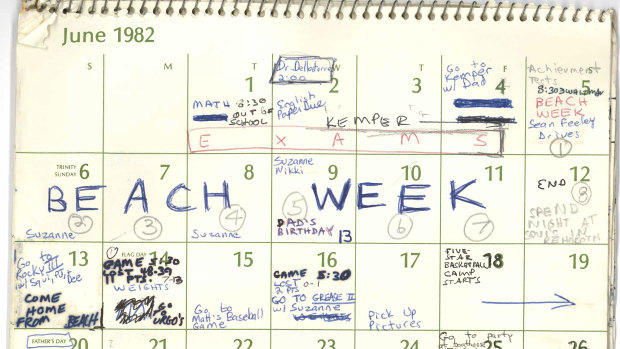 June 1982
S M T W T F S
1
MATH 8:30
OUT OF
SCHOOL
2
2:00
English
Paper Due
3
4
Go to
Kemper
w/ Dad
5
Achievment
Tests
8:30
BEACH
WEEK
Sean Feeley
Drives
①
KEMPER
EXAMS
TRINITY
SUNDAY
6
②
Suzanne
7
③
8
④
Suzanne
9
Suzanne
Mikki
⑤
DAD'S
BIRTHDAY
10
⑥
11
⑦
12
END
⑧
SPEND
NIGHT AT
IN
REHOBOTH
BEACH WEEK
13
Go to
Rocky III
w/ Squi,
COME
HOME
FROM BEACH
FLAG DAY
14
GAME
LOST 48-39
11 PTS.
WEIGHTS
GO
15
Go to
Matt's Baseball
Game
16
GAME 5:30
LOST
2 Pts.
GO TO GREASE II
w/ Suzanne
17
Pick Up
Pictures
18
FIVE-
STAR
BASKETBALL
CAMP
STARTS
19
FATHER'S DAY
20
21
22
23
24
25
Go to party
at
26